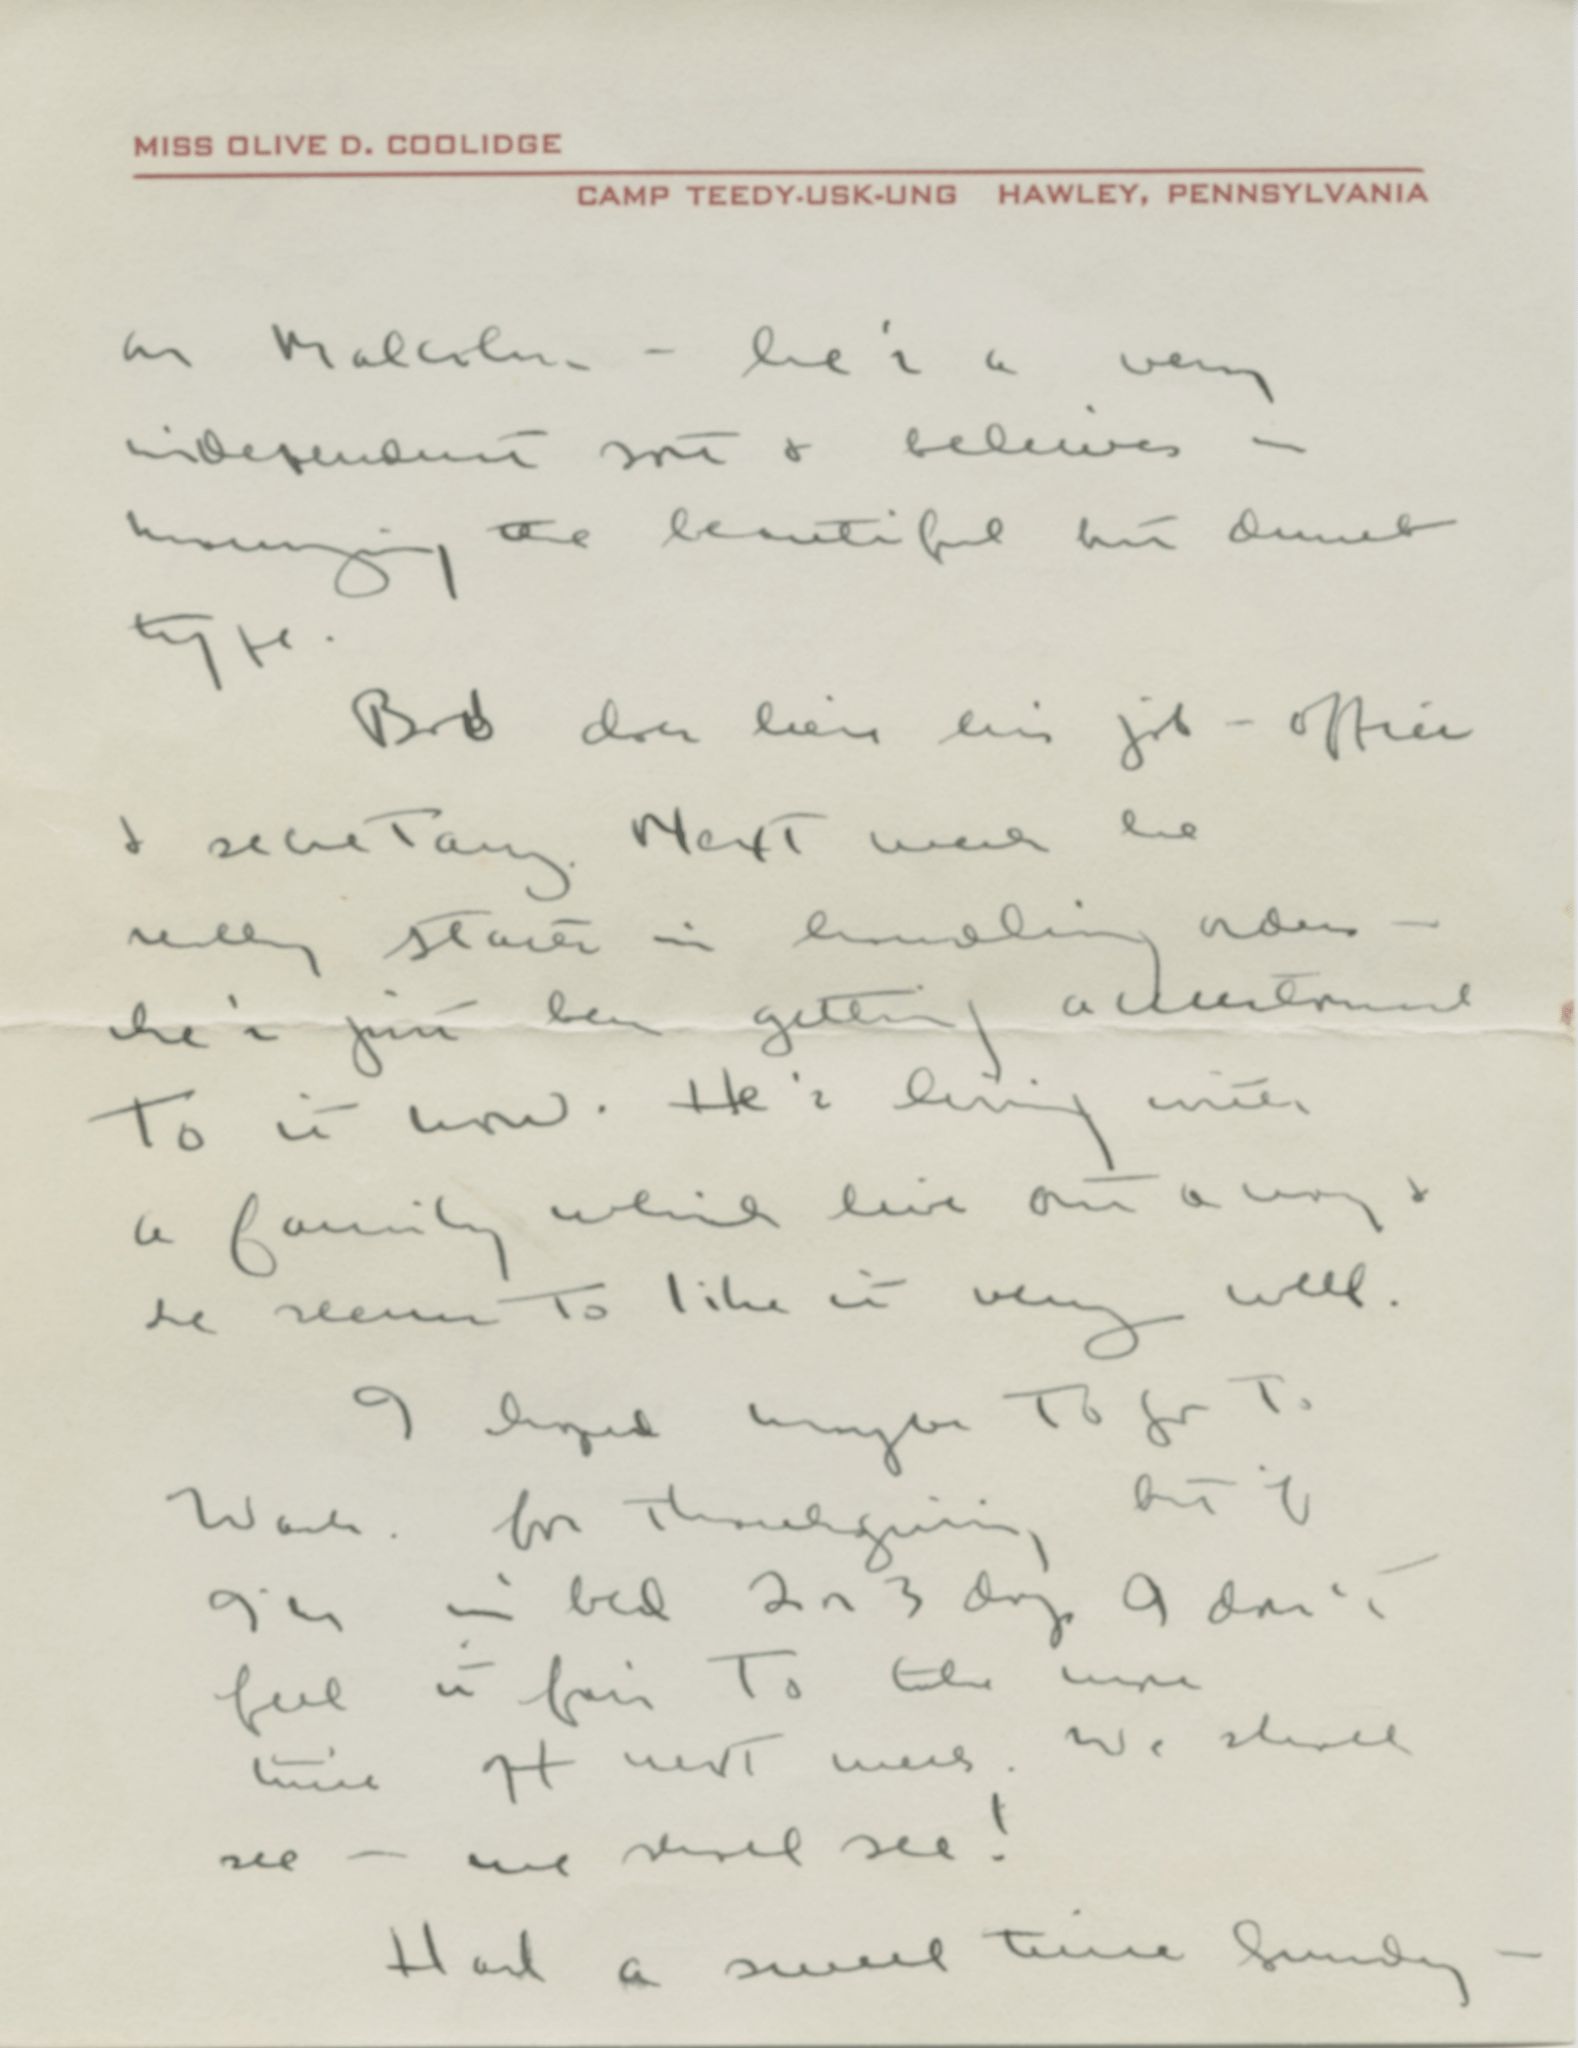 MISS OLIVE D. COOLIDGE
CAMP TEEDY-USK-UNG HAWLEY, PENNSYLVANIA
on Malcolm - he's a very
independent sort & believes in
marrying the beautiful but dumb
type.
Bob does like his job - office
& secretary. Next week he
really starts in handling orders -
he's just been getting accustomed
to it now. He's living with
a family which live out a way &
he seems to like it very well.
I hoped maybe to go to
Wash. for Thanksgiving but if
I'm in bed 2 or 3 days I don't
feel it fair to take more
time off next week. We shall
see - we shall see!
Had a swell time Sunday -